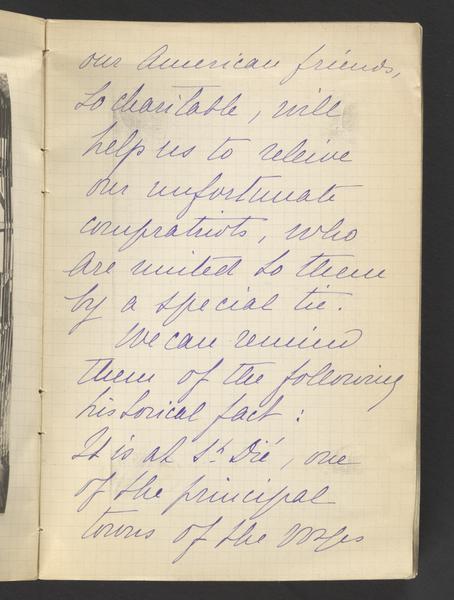 our American friends,
so charitable, will
help us to releive
our unfortunate
compratriots, who
are united to them
by a special tie.
We can remind
them of the following
historical fact :
It is at St Dié, one
of the principal
towns of the Vosges